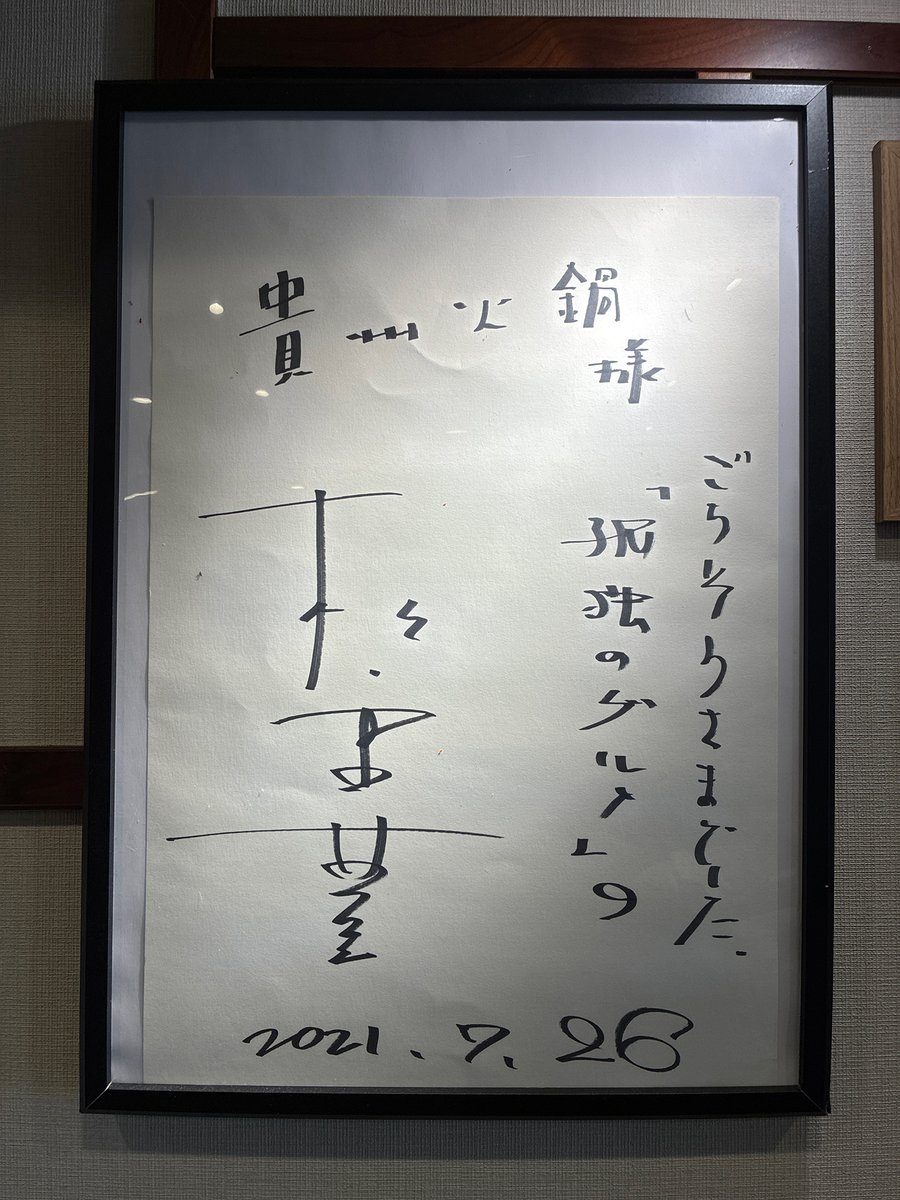 貴州火鍋様
ごちそうさまでした。
「孤独のグルメ」の
松重豊
2021.7.26